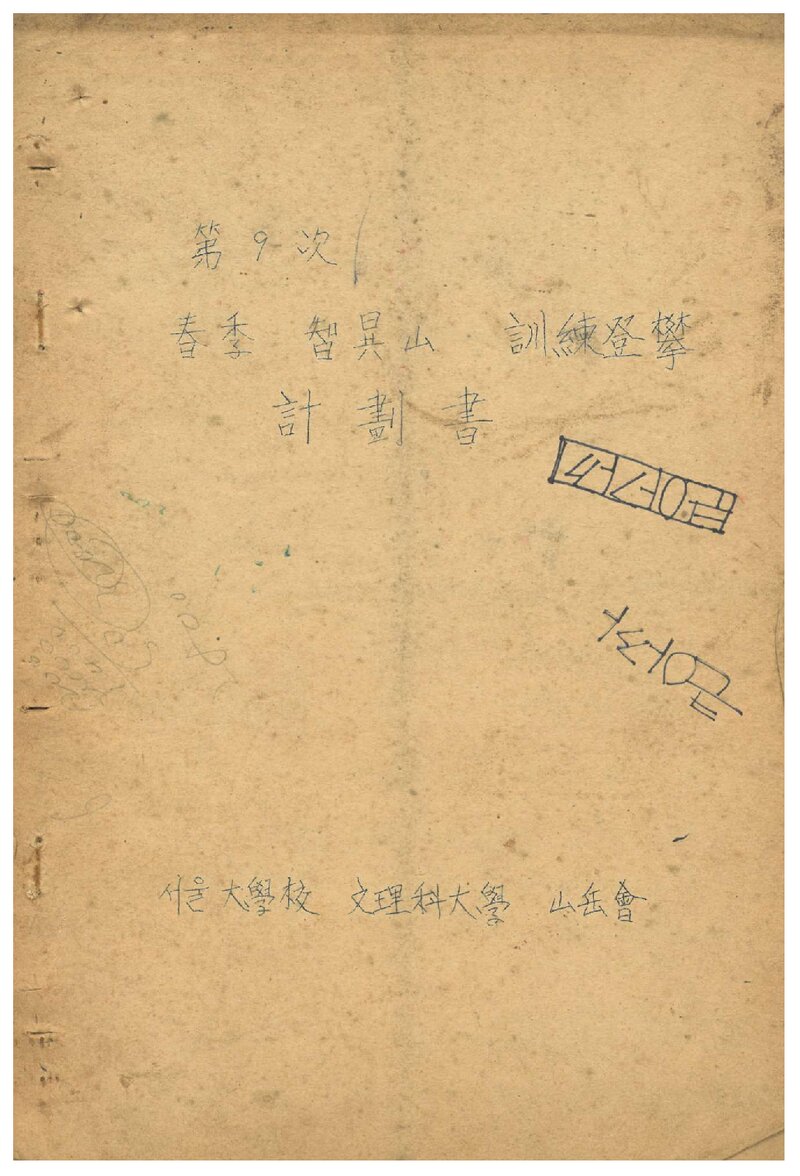 第 9 次
春季 智異山 訓練登攀
計劃書
서울大學校 文理科大學 山岳會